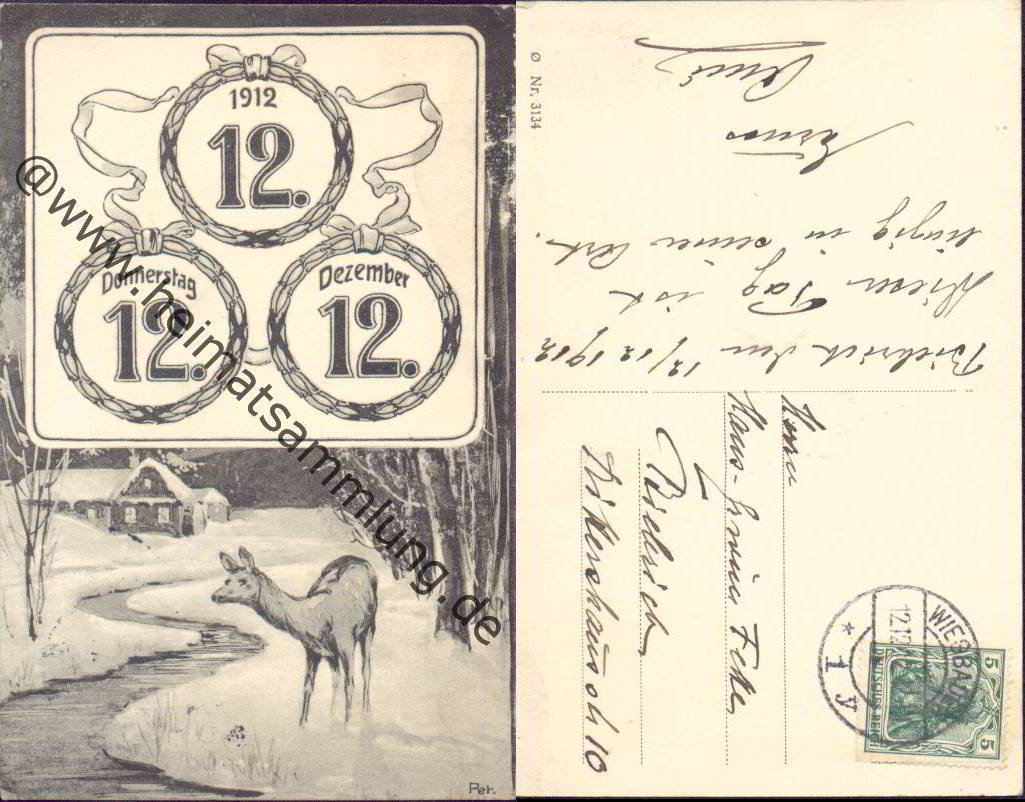 1912
12.
Donnerstag
12.
Dezember
12.
@www.heimatsammlung.de
Per.
Ø Nr. 3134
Biebrich den 12/12 1912
Dieser Tag ist
einzig in seiner Art.
Herrn
Hans-
Biebrich
10
WIESBADEN
12.12
* 1 y
5 5
DEUTSCHES REICH